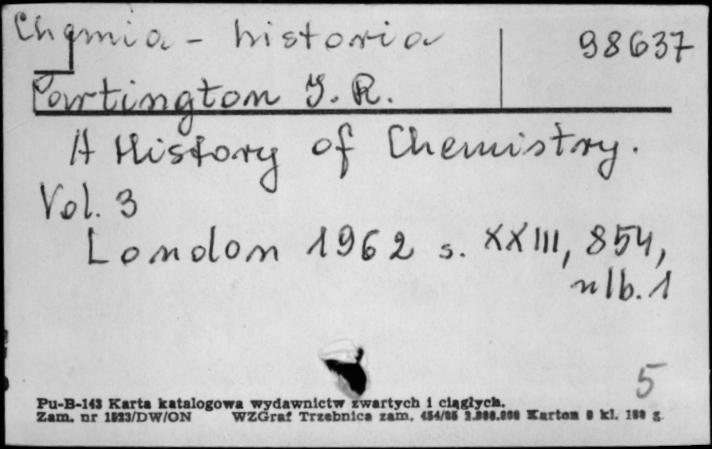 Chemia - historia 98637
Partington J. R.
A History of Chemistry.
Vol. 3
London 1962 s. XXIII, 854,
nlb. 1
5
Pu-B-143 Karta katalogowa wydawnictw zwartych i ciągłych.
Zam. nr 1523/DW/ON WZGraf Trzebnica zam. Karton kl. g